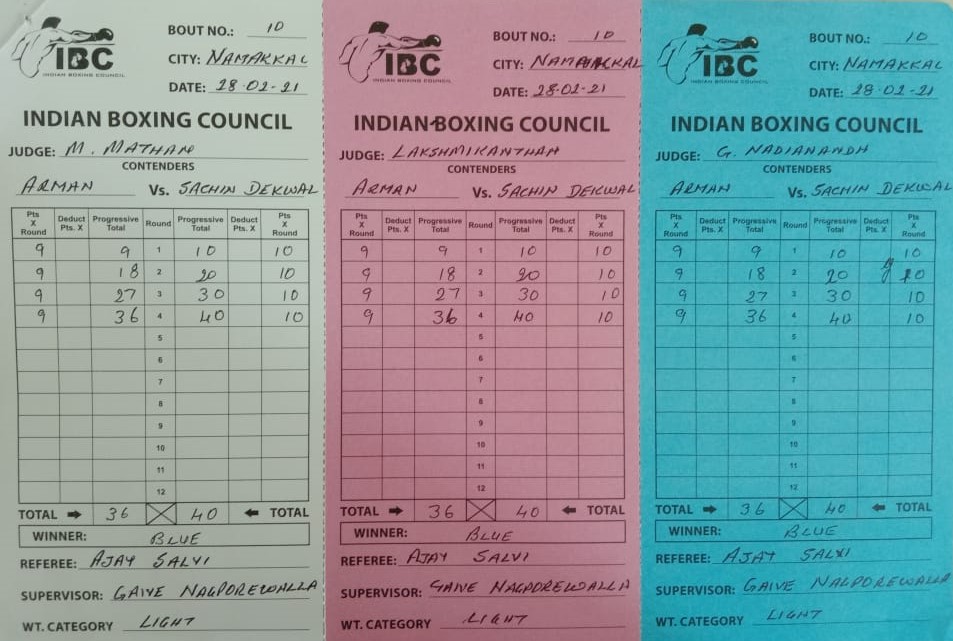 IBC
INDIAN BOXING COUNCIL
BOUT NO.: 10
CITY: NAMAKKAL
DATE: 28-02-21
INDIAN BOXING COUNCIL
JUDGE: M. MATHAN
CONTENDERS
ARMAN Vs. SACHIN DEKWAL
Pts X Round Deduct Pts. X Progressive Total Round Progressive Total Deduct Pts. X Pts X Round
9 9 1 10 10
9 18 2 20 10
9 27 3 30 10
9 36 4 40 10
5
6
7
8
9
10
11
12
TOTAL 36 40 TOTAL
WINNER: BLUE
REFEREE: AJAY SALVI
SUPERVISOR: GAIVE NAGPOREWALLA
WT. CATEGORY LIGHT
IBC
INDIAN BOXING COUNCIL
BOUT NO.: 10
CITY: NAMAKKAL
DATE: 28-02-21
INDIAN BOXING COUNCIL
JUDGE: LAKSHMIKANTHAN
CONTENDERS
ARMAN Vs. SACHIN DEKWAL
Pts X Round Deduct Pts. X Progressive Total Round Progressive Total Deduct Pts. X Pts X Round
9 9 1 10 10
9 18 2 20 10
9 27 3 30 10
9 36 4 40 10
5
6
7
8
9
10
11
12
TOTAL 36 40 TOTAL
WINNER: BLUE
REFEREE: AJAY SALVI
SUPERVISOR: GAIVE NAGPOREWALLA
WT. CATEGORY LIGHT
IBC
INDIAN BOXING COUNCIL
BOUT NO.: 10
CITY: NAMAKKAL
DATE: 28-02-21
INDIAN BOXING COUNCIL
JUDGE: G. NADIANANDH
CONTENDERS
ARMAN Vs. SACHIN DEKWAL
Pts X Round Deduct Pts. X Progressive Total Round Progressive Total Deduct Pts. X Pts X Round
9 9 1 10 10
9 18 2 20 10
9 27 3 30 10
9 36 4 40 10
5
6
7
8
9
10
11
12
TOTAL 36 40 TOTAL
WINNER: BLUE
REFEREE: AJAY SALVI
SUPERVISOR: GAIVE NAGPOREWALLA
WT. CATEGORY LIGHT